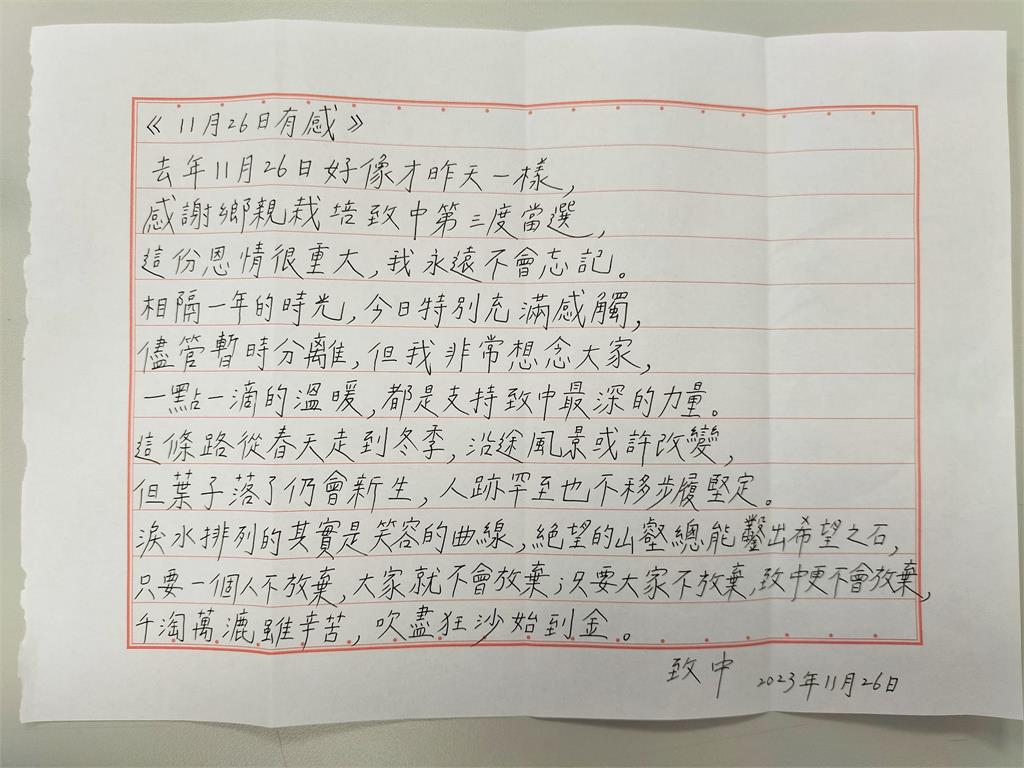 《11月26日有感》
去年11月26日好像才昨天一樣,
感謝鄉親栽培致中第三度當選,
這份恩情很重大,我永遠不會忘記。
相隔一年的時光,今日特別充滿感觸,
儘管暫時分離,但我非常想念大家,
一點一滴的溫暖,都是支持致中最深的力量。
這條路從春天走到冬季,沿途風景或許改變,
但葉子落了仍會新生,人跡罕至也不移步履堅定。
淚水排列的其實是笑容的曲線,絕望的山壑總能鑿出希望之石,
只要一個人不放棄,大家就不會放棄;只要大家不放棄,致中更不會放棄,
千淘萬漉雖辛苦,吹盡狂沙始到金。
致中 2023年11月26日